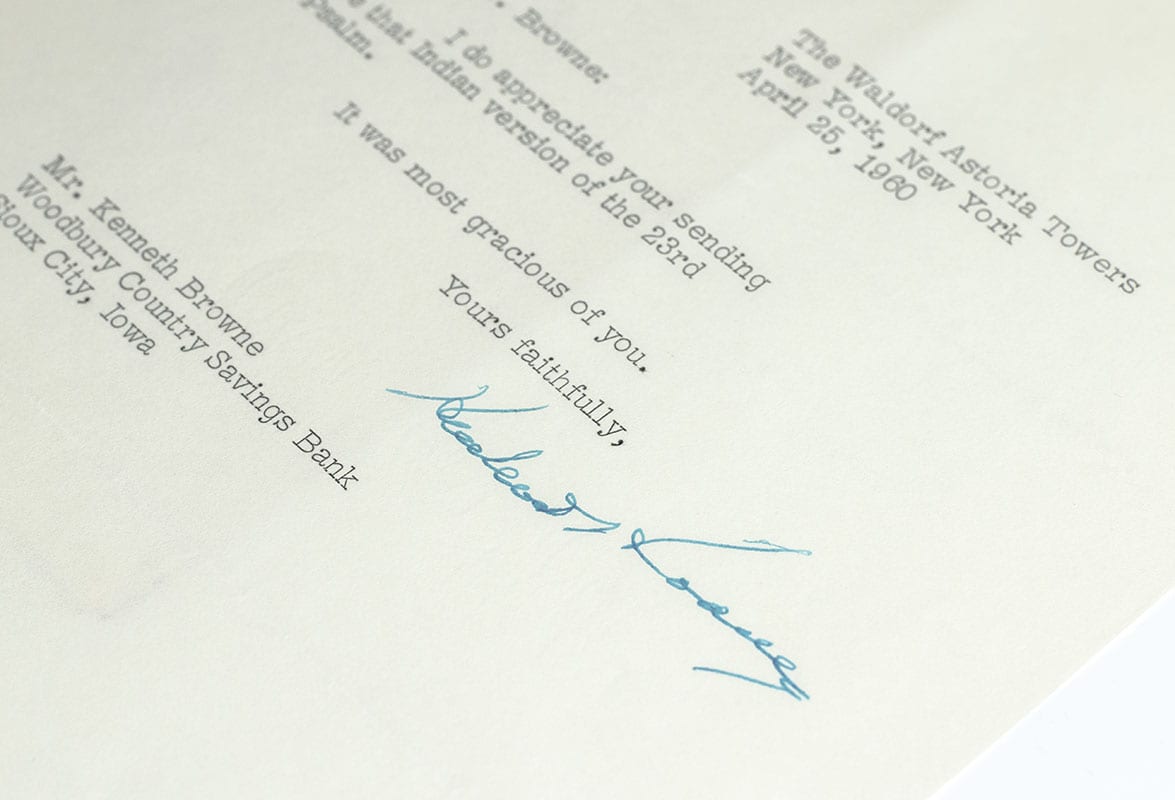 The Waldorf Astoria Towers
New York, New York
April 25, 1960
. Browne:
I do appreciate your sending
e that Indian version of the 23rd
Psalm.
It was most gracious of you.
Yours faithfully,
Mr. Kenneth Browne
Woodbury Country Savings Bank
Sioux City, Iowa